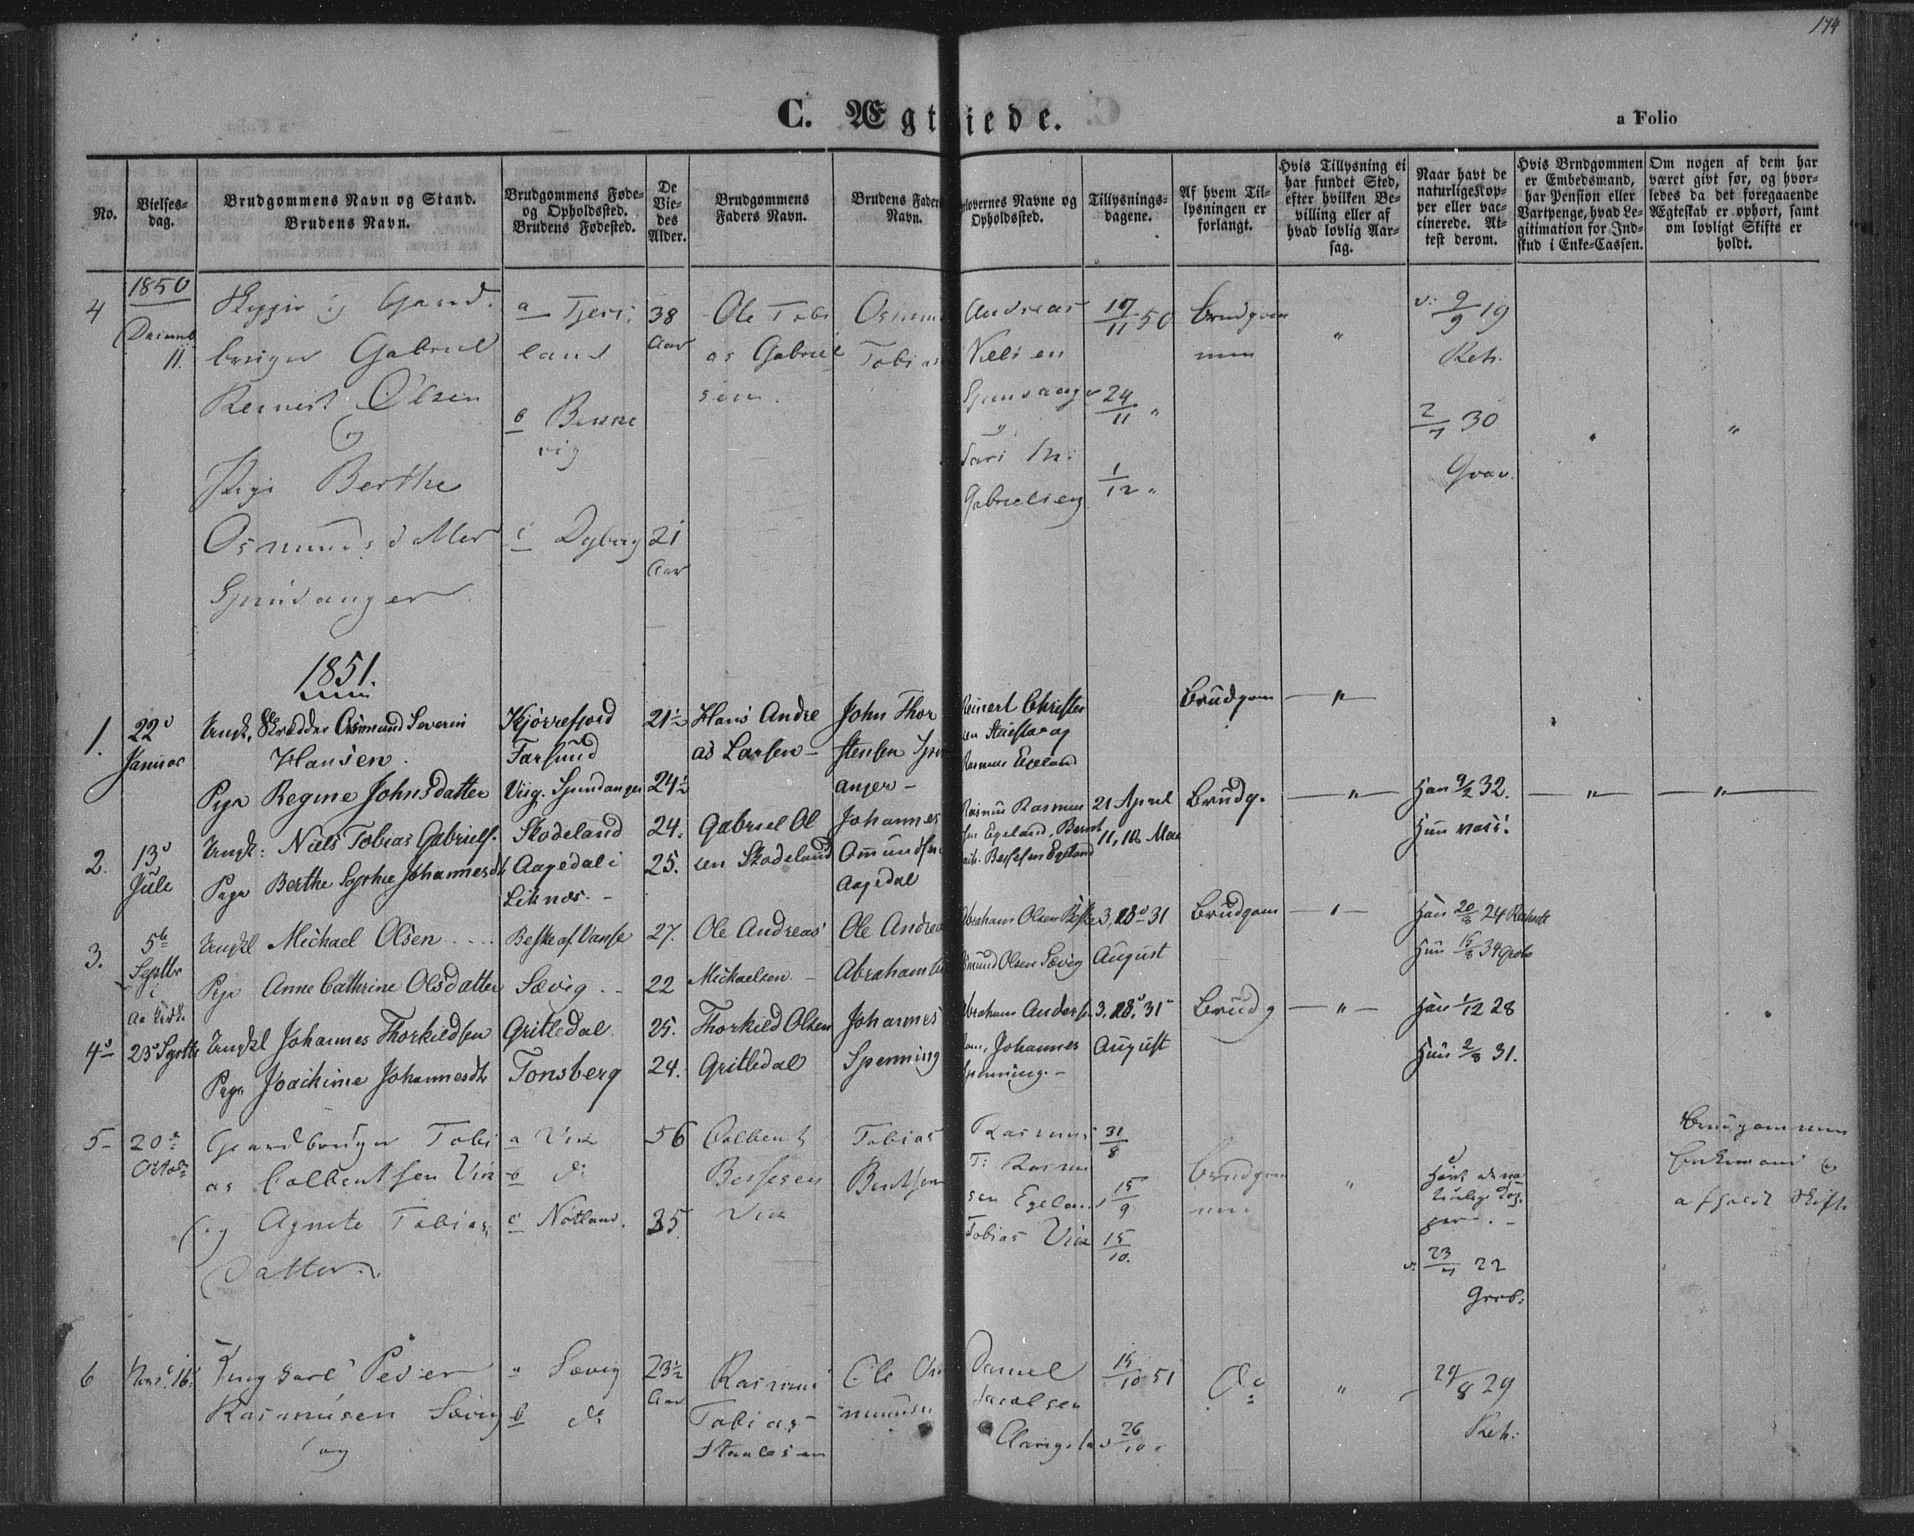 174
C. Ægteviede.
a Folio
No.
Vielses-
dag.
Brudgommens Navn og Stand.
Brudens Navn.
Brudgommens Føde-
og Opholdsted.
Brudens Fødested.
De
Vie-
des
Alder.
Brudgommens
Faders Navn.
Brudens Faders
Navn.
Forlovernes Navne og
Opholdsted.
Tillysnings-
dagene.
Af hvem Til-
lysningen er
forlangt.
Hvis Tillysning ei
har fundet Sted,
efter hvilken Be-
villing eller af
hvad lovlig Aar-
sag.
Naar havt de
naturlige Kop-
per eller vac-
cinerede. At-
test derom.
Hvis Brudgommen
er Embedsmand,
har Pension eller
Vartpenge, hvad Le-
gitimation for Ind-
skud i Enke-Cassen.
Om nogen af dem har
været givt før, og hvor-
ledes da det foregaaende
Ægteskab er ophørt, samt
om lovligt Skifte er
holdt.
4
1850
11.
og Gaard-
bruger Gabriel
Reinert Olsen
og
Pige Berthe
Osmundsd
a Tjers-
land
b
c Dyberg
38
Aar
21
Aar
Ole Tobi
as Gabriel
sen.
Osmund
Tobias
Andreas
Nielsen
Gabrielsen
17/11 50
24/11 "
1/12 "
Brudgom
men
"
v. 9/9 19
Reh.
2/7 30
"
1851.
1.
22d
Januar
Ungk. Skrædder Osmund Severin
Hansen.
Pige Regine Johnsdatter
Kjørrefjord
Farsund
24½
21½
Hans Andre
as Larsen
John Thor
stensen
anger
Reinert Christen
sen
Rasmus Egeland
Brudgom
"
2.
13d
Jule
Ungk: Niels Tobias Gabriels.
Pige Berthe Sophie Johannesdt
Skodeland
Aagedal i
Liknes.
24.
25.
Gabriel Ol
sen Skodeland
Johannes
Omundsen
Aagedal
Rasmus Rasmus
sen Egeland, Bernt
Bessesen Egeland
21 April
11, 18 Mai
Brudg.
"
Han 9/2 32.
Hun vacc.
"
"
3.
5te
Septbr
i
Aa Kirke
Ungkl Michael Olsen
Pige Anne Cathrine Olsdatter
Beske af Vanse
Sævig
27.
22
Ole Andreas
Michaelsen
Ole Andrea
Abrahamsen
Abraham Olsen Beske
Osmund Olsen Sævig
3, 18 31
August
Brudgom
"
Han 20/8 24
Hun 15/8 34
4
23d Septbr
Ungkl Johannes Thorkildsen
Pige Joachime Johannesdtr
Gritledal
Tonsberg
25.
24.
Thorkild Olsen
Gritledal
Johannes
Spenning
Abraham Anders
sen, Johannes
Spenning.
3, 18, 31
August
Brudg
"
Han 1/12 28
Hun 2/8 31.
5
20de
Octobr
Gaardbruger Tobi
as Colbentsen Vik
og Agnete Tobias
Datter.
a Vik
b do
c Nøtland.
56
35
Colbent
Bessesen
Vik
Tobias
Berntsen
Rasmus
T: Rasmus
sen Egeland
Tobias Vik
31/8
15/9
15/10.
Brudgom
men
"
Han de na-
turlige Kop-
per.
v. 23/7 22
Brudgommen
Enkemand
afholdt Skifte
6
16
Ungkarl Peder
Rasmusen Sævig
og
a Sævig
b do
23½
Aar
Rasmus
Tobias
Ole Os
mundsen
Daniel
Jacobsen
15/10 51
26/10
do
"
29/8 29
Reh.